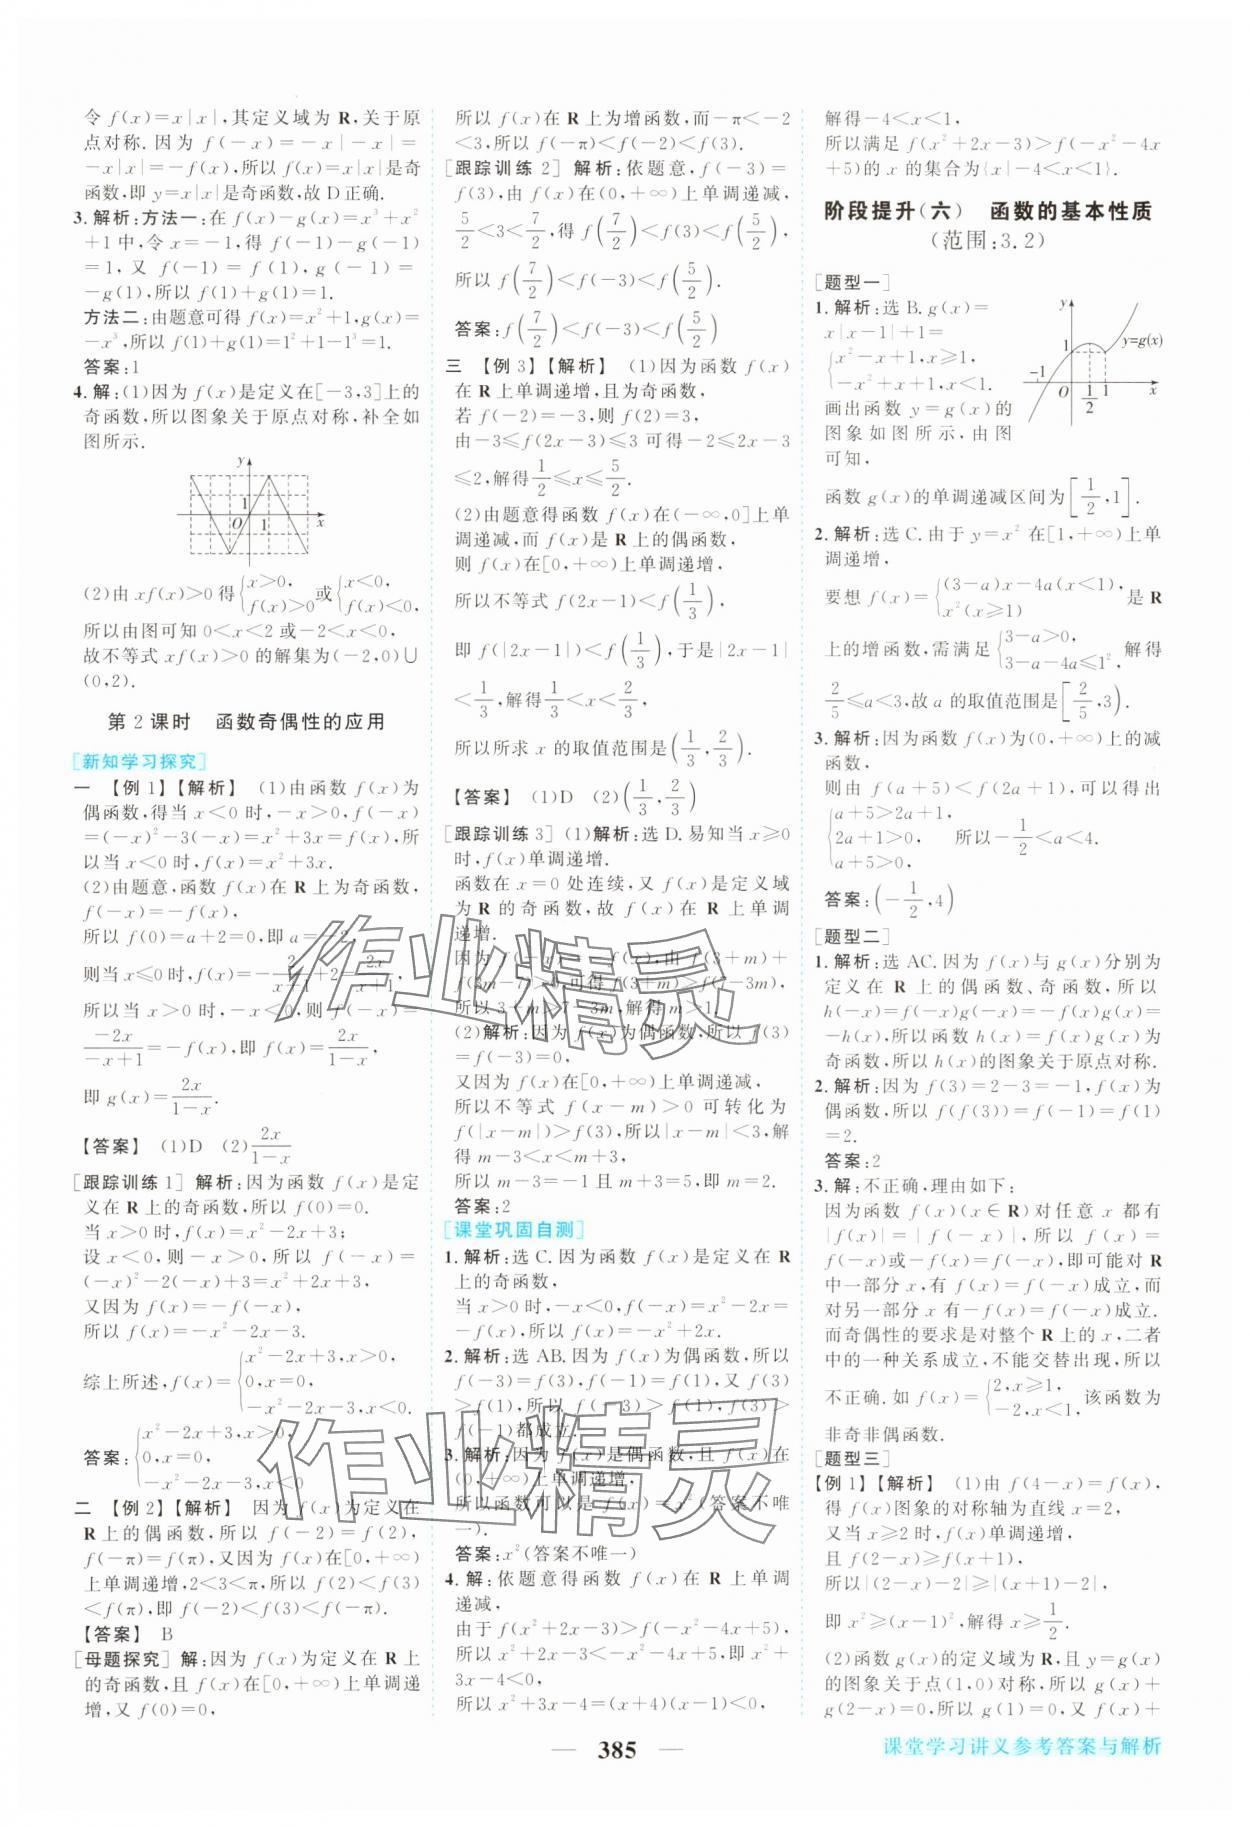 令 f(x)=x|x|,其定义域为 R,关于原
点对称.因为 f(-x)=-x|-x|=
-x|x|=-f(x),所以 f(x)=x|x|是奇
函数,即 y=x|x|是奇函数,故 D 正确.
3.解析:方法一:在 f(x)-g(x)=x³+x²
+1 中,令 x=-1,得 f(-1)-g(-1)
=1,又 f(-1)=f(1),g(-1)=
-g(1),所以 f(1)+g(1)=1.
方法二:由题意可得 f(x)=x²+1,g(x)=
-x³,所以 f(1)+g(1)=1²+1-1³=1.
答案:1
4.解:(1)因为 f(x)是定义在[-3,3]上的
奇函数,所以图象关于原点对称,补全如
图所示.
y
1
O 1 x
(2)由 xf(x)>0 得{x>0, f(x)>0 或{x<0, f(x)<0,
所以由图可知 0<x<2 或-2<x<0,
故不等式 xf(x)>0 的解集为(-2,0)∪
(0,2).
第 2 课时 函数奇偶性的应用
[新知学习探究]
一 【例 1】【解析】 (1)由函数 f(x)为
偶函数,得当 x<0 时,-x>0,f(-x)
=(-x)²-3(-x)=x²+3x=f(x),所
以当 x<0 时,f(x)=x²+3x.
(2)由题意,函数 f(x)在 R 上为奇函数,
f(-x)=-f(x),
所以 f(0)=a+2=0,即 a=-2,
则当 x≤0 时,f(x)=-2/(x+1)+2=2x/(x+1),
所以当 x>0 时,-x<0,则 f(-x)=
-2x/(-x+1)=-f(x),即 f(x)=2x/(1-x),
即 g(x)=2x/(1-x).
【答案】 (1)D (2)2x/(1-x)
[跟踪训练 1] 解析:因为函数 f(x)是定
义在 R 上的奇函数,所以 f(0)=0.
当 x>0 时,f(x)=x²-2x+3;
设 x<0,则 -x>0,所以 f(-x)=
(-x)²-2(-x)+3=x²+2x+3,
又因为 f(x)=-f(-x),
所以 f(x)=-x²-2x-3.
综上所述,f(x)={x²-2x+3,x>0, 0,x=0, -x²-2x-3,x<0.
答案:{x²-2x+3,x>0, 0,x=0, -x²-2x-3,x<0
二 【例 2】【解析】 因为 f(x)为定义在
R 上的偶函数,所以 f(-2)=f(2),
f(-π)=f(π),又因为 f(x)在[0,+∞)
上单调递增,2<3<π,所以 f(2)<f(3)
<f(π),即 f(-2)<f(3)<f(-π).
【答案】 B
[母题探究] 解:因为 f(x)为定义在 R 上
的奇函数,且 f(x)在[0,+∞)上单调递
增,又 f(0)=0,
所以 f(x)在 R 上为增函数,而-π<-2
<3,所以 f(-π)<f(-2)<f(3).
[跟踪训练 2] 解析:依题意,f(-3)=
f(3),由 f(x)在(0,+∞)上单调递减,
5/2<3<7/2,得 f(7/2)<f(3)<f(5/2),
所以 f(7/2)<f(-3)<f(5/2).
答案:f(7/2)<f(-3)<f(5/2)
三 【例 3】【解析】 (1)因为函数 f(x)
在 R 上单调递增,且为奇函数,
若 f(-2)=-3,则 f(2)=3,
由-3≤f(2x-3)≤3 可得-2≤2x-3
≤2,解得1/2≤x≤5/2.
(2)由题意得函数 f(x)在(-∞,0]上单
调递减,而 f(x)是 R 上的偶函数,
则 f(x)在[0,+∞)上单调递增,
所以不等式 f(2x-1)<f(1/3),
即 f(|2x-1|)<f(1/3),于是|2x-1|
<1/3,解得1/3<x<2/3,
所以所求 x 的取值范围是(1/3,2/3).
【答案】 (1)D (2)(1/3,2/3)
[跟踪训练 3] (1)解析:选 D.易知当 x≥0
时,f(x)单调递增.
函数在 x=0 处连续,又 f(x)是定义域
为 R 的奇函数,故 f(x)在 R 上单调
递增.
因为 f(-x)=-f(x),由 f(3+m)+
f(3m-7)>0,可得 f(3+m)>f(7-3m),
所以 3+m>7-3m,解得 m>1.
(2)解析:因为 f(x)为偶函数,所以 f(3)
=f(-3)=0,
又因为 f(x)在[0,+∞)上单调递减,
所以不等式 f(x-m)>0 可转化为
f(|x-m|)>f(3),所以|x-m|<3,解
得 m-3<x<m+3,
所以 m-3=-1 且 m+3=5,即 m=2.
答案:2
[课堂巩固自测]
1.解析:选 C.因为函数 f(x)是定义在 R
上的奇函数,
当 x>0 时,-x<0,f(-x)=x²-2x=
-f(x),所以 f(x)=-x²+2x.
2.解析:选 AB.因为 f(x)为偶函数,所以
f(-3)=f(3),f(-1)=f(1),又 f(3)
>f(1),所以 f(-3)>f(1),f(3)>
f(-1)都成立.
3.解析:因为 f(x)是偶函数,且 f(x)在
(0,+∞)上单调递增,
所以函数可以是 f(x)=x²(答案不唯
一).
答案:x²(答案不唯一)
4.解:依题意得函数 f(x)在 R 上单调
递减,
由于 f(x²+2x-3)>f(-x²-4x+5),
所以 x²+2x-3<-x²-4x+5,即 x²+
3x-4<0,
所以 x²+3x-4=(x+4)(x-1)<0,
解得-4<x<1,
所以满足 f(x²+2x-3)>f(-x²-4x
+5)的 x 的集合为{x|-4<x<1}.
阶段提升(六) 函数的基本性质
(范围:3.2)
[题型一]
1.解析:选 B.g(x)=
x|x-1|+1=
{x²-x+1,x≥1, -x²+x+1,x<1.
画出函数 y=g(x)的
图象如图所示,由图
可知,
y
1
y=g(x)
-1 O 1/2 1 x
函数 g(x)的单调递减区间为[1/2,1].
2.解析:选 C.由于 y=x² 在[1,+∞)上单
调递增,
要想 f(x)={(3-a)x-4a(x<1), x²(x≥1) 是 R
上的增函数,需满足{3-a>0, 3-a-4a≤1², 解得
2/5≤a<3,故 a 的取值范围是[2/5,3).
3.解析:因为函数 f(x)为(0,+∞)上的减
函数,
则由 f(a+5)<f(2a+1),可以得出
{a+5>2a+1, 2a+1>0, a+5>0, 所以-1/2<a<4.
答案:(-1/2,4)
[题型二]
1.解析:选 AC.因为 f(x)与 g(x)分别为
定义在 R 上的偶函数、奇函数,所以
h(-x)=f(-x)g(-x)=-f(x)g(x)=
-h(x),所以函数 h(x)=f(x)g(x)为
奇函数,所以 h(x)的图象关于原点对称.
2.解析:因为 f(3)=2-3=-1,f(x)为
偶函数,所以 f(f(3))=f(-1)=f(1)
=2.
答案:2
3.解:不正确,理由如下:
因为函数 f(x)(x∈R)对任意 x 都有
|f(x)|=|f(-x)|,所以 f(x)=
f(-x)或-f(x)=f(-x),即可能对 R
中一部分 x,有 f(x)=f(-x)成立,而
对另一部分 x 有-f(x)=f(-x)成立.
而奇偶性的要求是对整个 R 上的 x,二者
中的一种关系成立,不能交替出现,所以
不正确.如 f(x)={2,x≥1, -2,x<1, 该函数为
非奇非偶函数.
[题型三]
【例 1】【解析】 (1)由 f(4-x)=f(x),
得 f(x)图象的对称轴为直线 x=2,
又当 x≥2 时,f(x)单调递增,
且 f(2-x)≥f(x+1),
所以|(2-x)-2|≥|(x+1)-2|,
即 x²≥(x-1)²,解得 x≥1/2.
(2)函数 g(x)的定义域为 R,且 y=g(x)
的图象关于点(1,0)对称,所以 g(x)+
g(2-x)=0,所以 g(1)=0,又 f(x)+
— 385 —
课堂学习讲义参考答案与解析
作业精灵
作业精灵